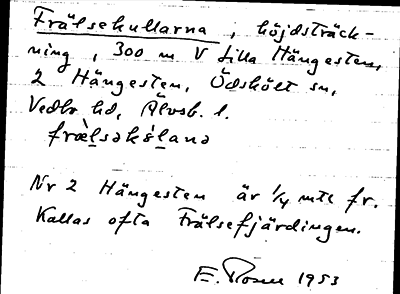 Frälsekullarna, höjdsträck-
ning, 300 m V Lilla Hängesten,
2 Hängesten, Ödskölt sn,
Vedbo hd, Älvsb. l.
Nr 2 Hängesten är 1/4 mtl fr.
Kallas ofta Frälsefjärdingen.
E. 1953